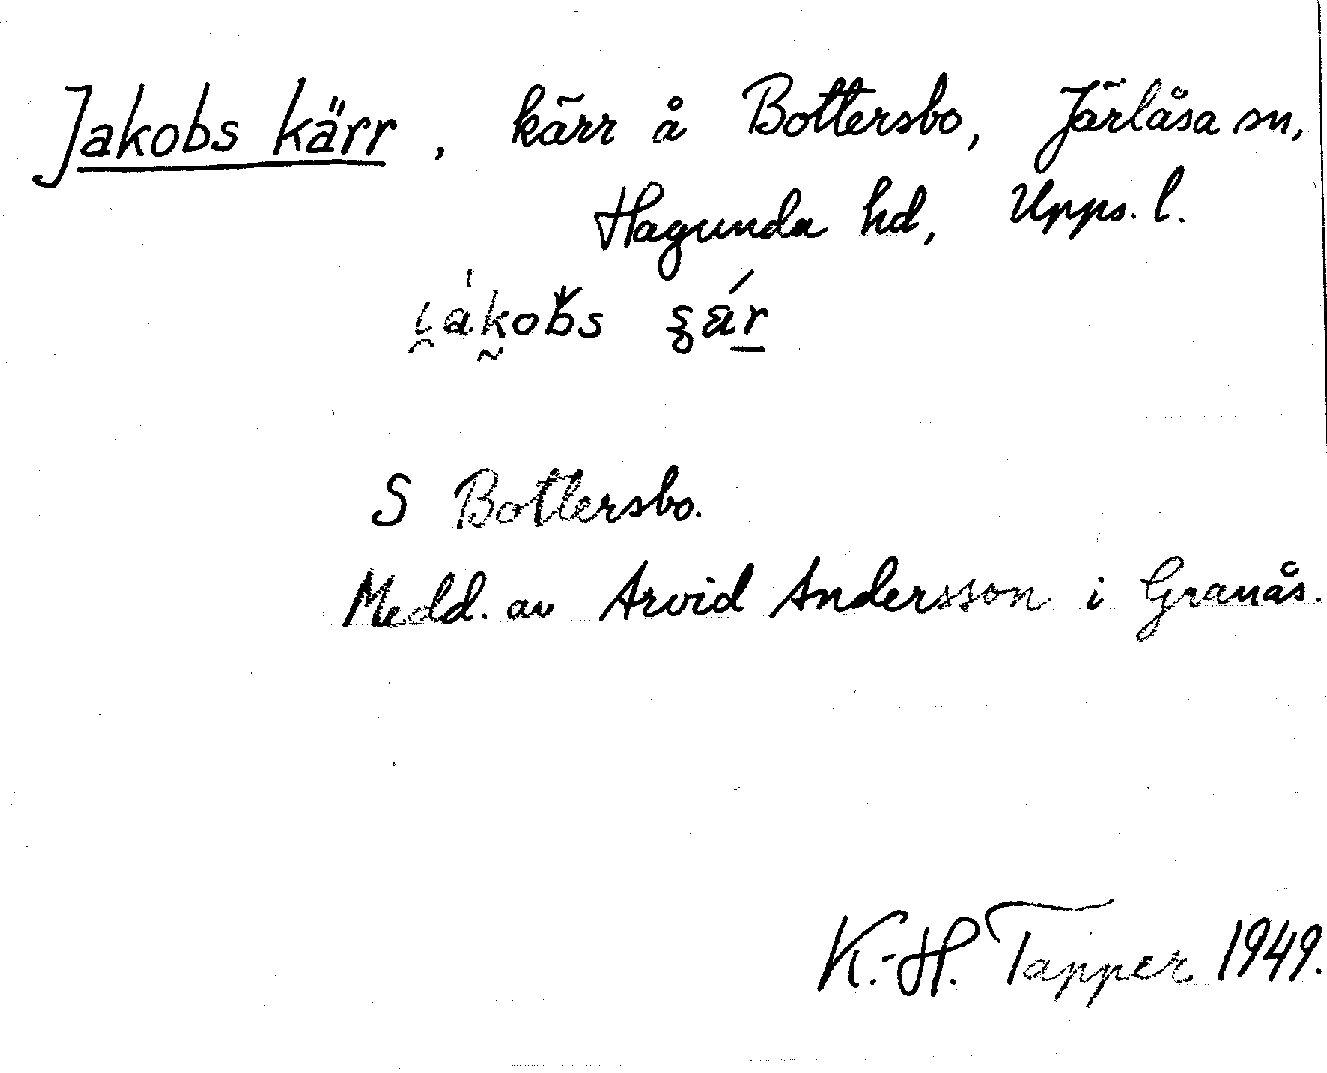 Jakobs kärr, kärr å Bottersbo, Järlåsa sn,
Hagunda hd, Upps. l.
S Bottersbo.
Medd. av Arvid Andersson i Granås.
K.-H. Tapper 1949.